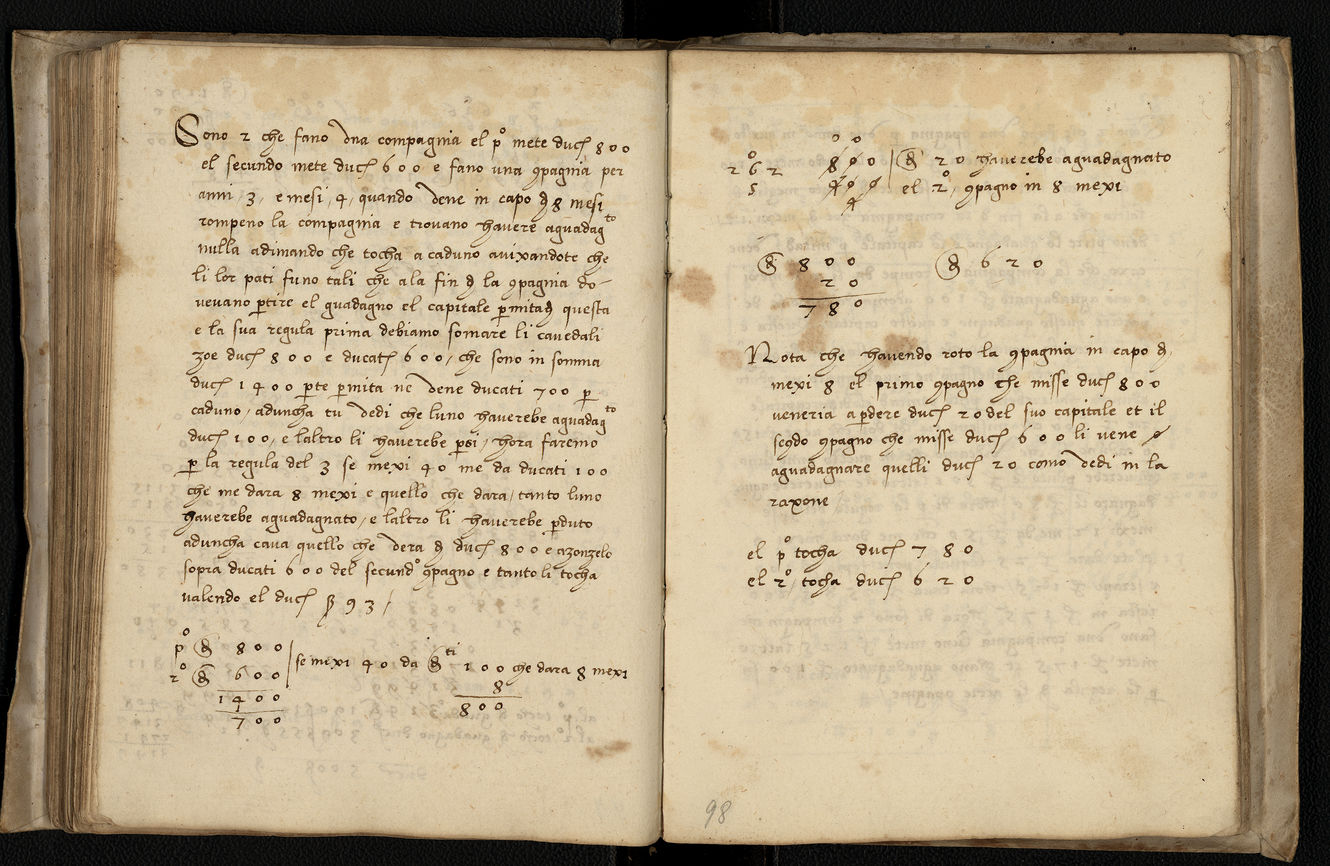 Sono 2 che fano una compagnia el pº mete duc 800
el secundo mete duc 600 e fano una 9pagnia per
anni 3, e mesi, 4, quando vene in capo d 8 mesi
rompeno la compagnia e trovano havere aguadagto
nulla adimando che tocha a caduno avixandote che
li lor pati funo tali che ala fin d la 9pagnia do-
vevano ptire el guadagno el capitale pmitad questa
e la sua regula prima debiamo somare li cavedali
zoe duc 800 e ducat 600, che sono in somma
duc 1400 pte pmita ne vene ducati 700 p
caduno, aduncha tu vedi che luno haverebe aguadagto
duc 100, e laltro li haverebe psi, hora faremo
p la regula del 3 se mexi 40 me da ducati 100
che me dara 8 mexi e quello che dara, tanto luno
haverebe aguadagnato, e laltro li haverebe pduto
aduncha cava quello che vera d duc 800 e azonzelo
sopra ducati 600 del secundº 9pagno e tanto li tocha
valendo el duc β 93,
pº d 800
2º d 600
1400
700
se mixi 40 da dti 100 che dara 8 mexi
8
800
0
262
5
00
800
400
4
d 20 haverebe aguadagnato
el 2º, 9pagno in 8 mexi
d 800
20
780
d 620
Nota che havendo roto la 9pagnia in capo d,
mexi 8 el primo 9pagno che misse duc 800
veneria apdere duc 20 del suo capitale et il
se9do 9pagno che misse duc 600 li vene
aguadagnare quelli duc 20 como vedi in la
raxone
el pº tocha duc 780
el 2º, tocha duc 620
98